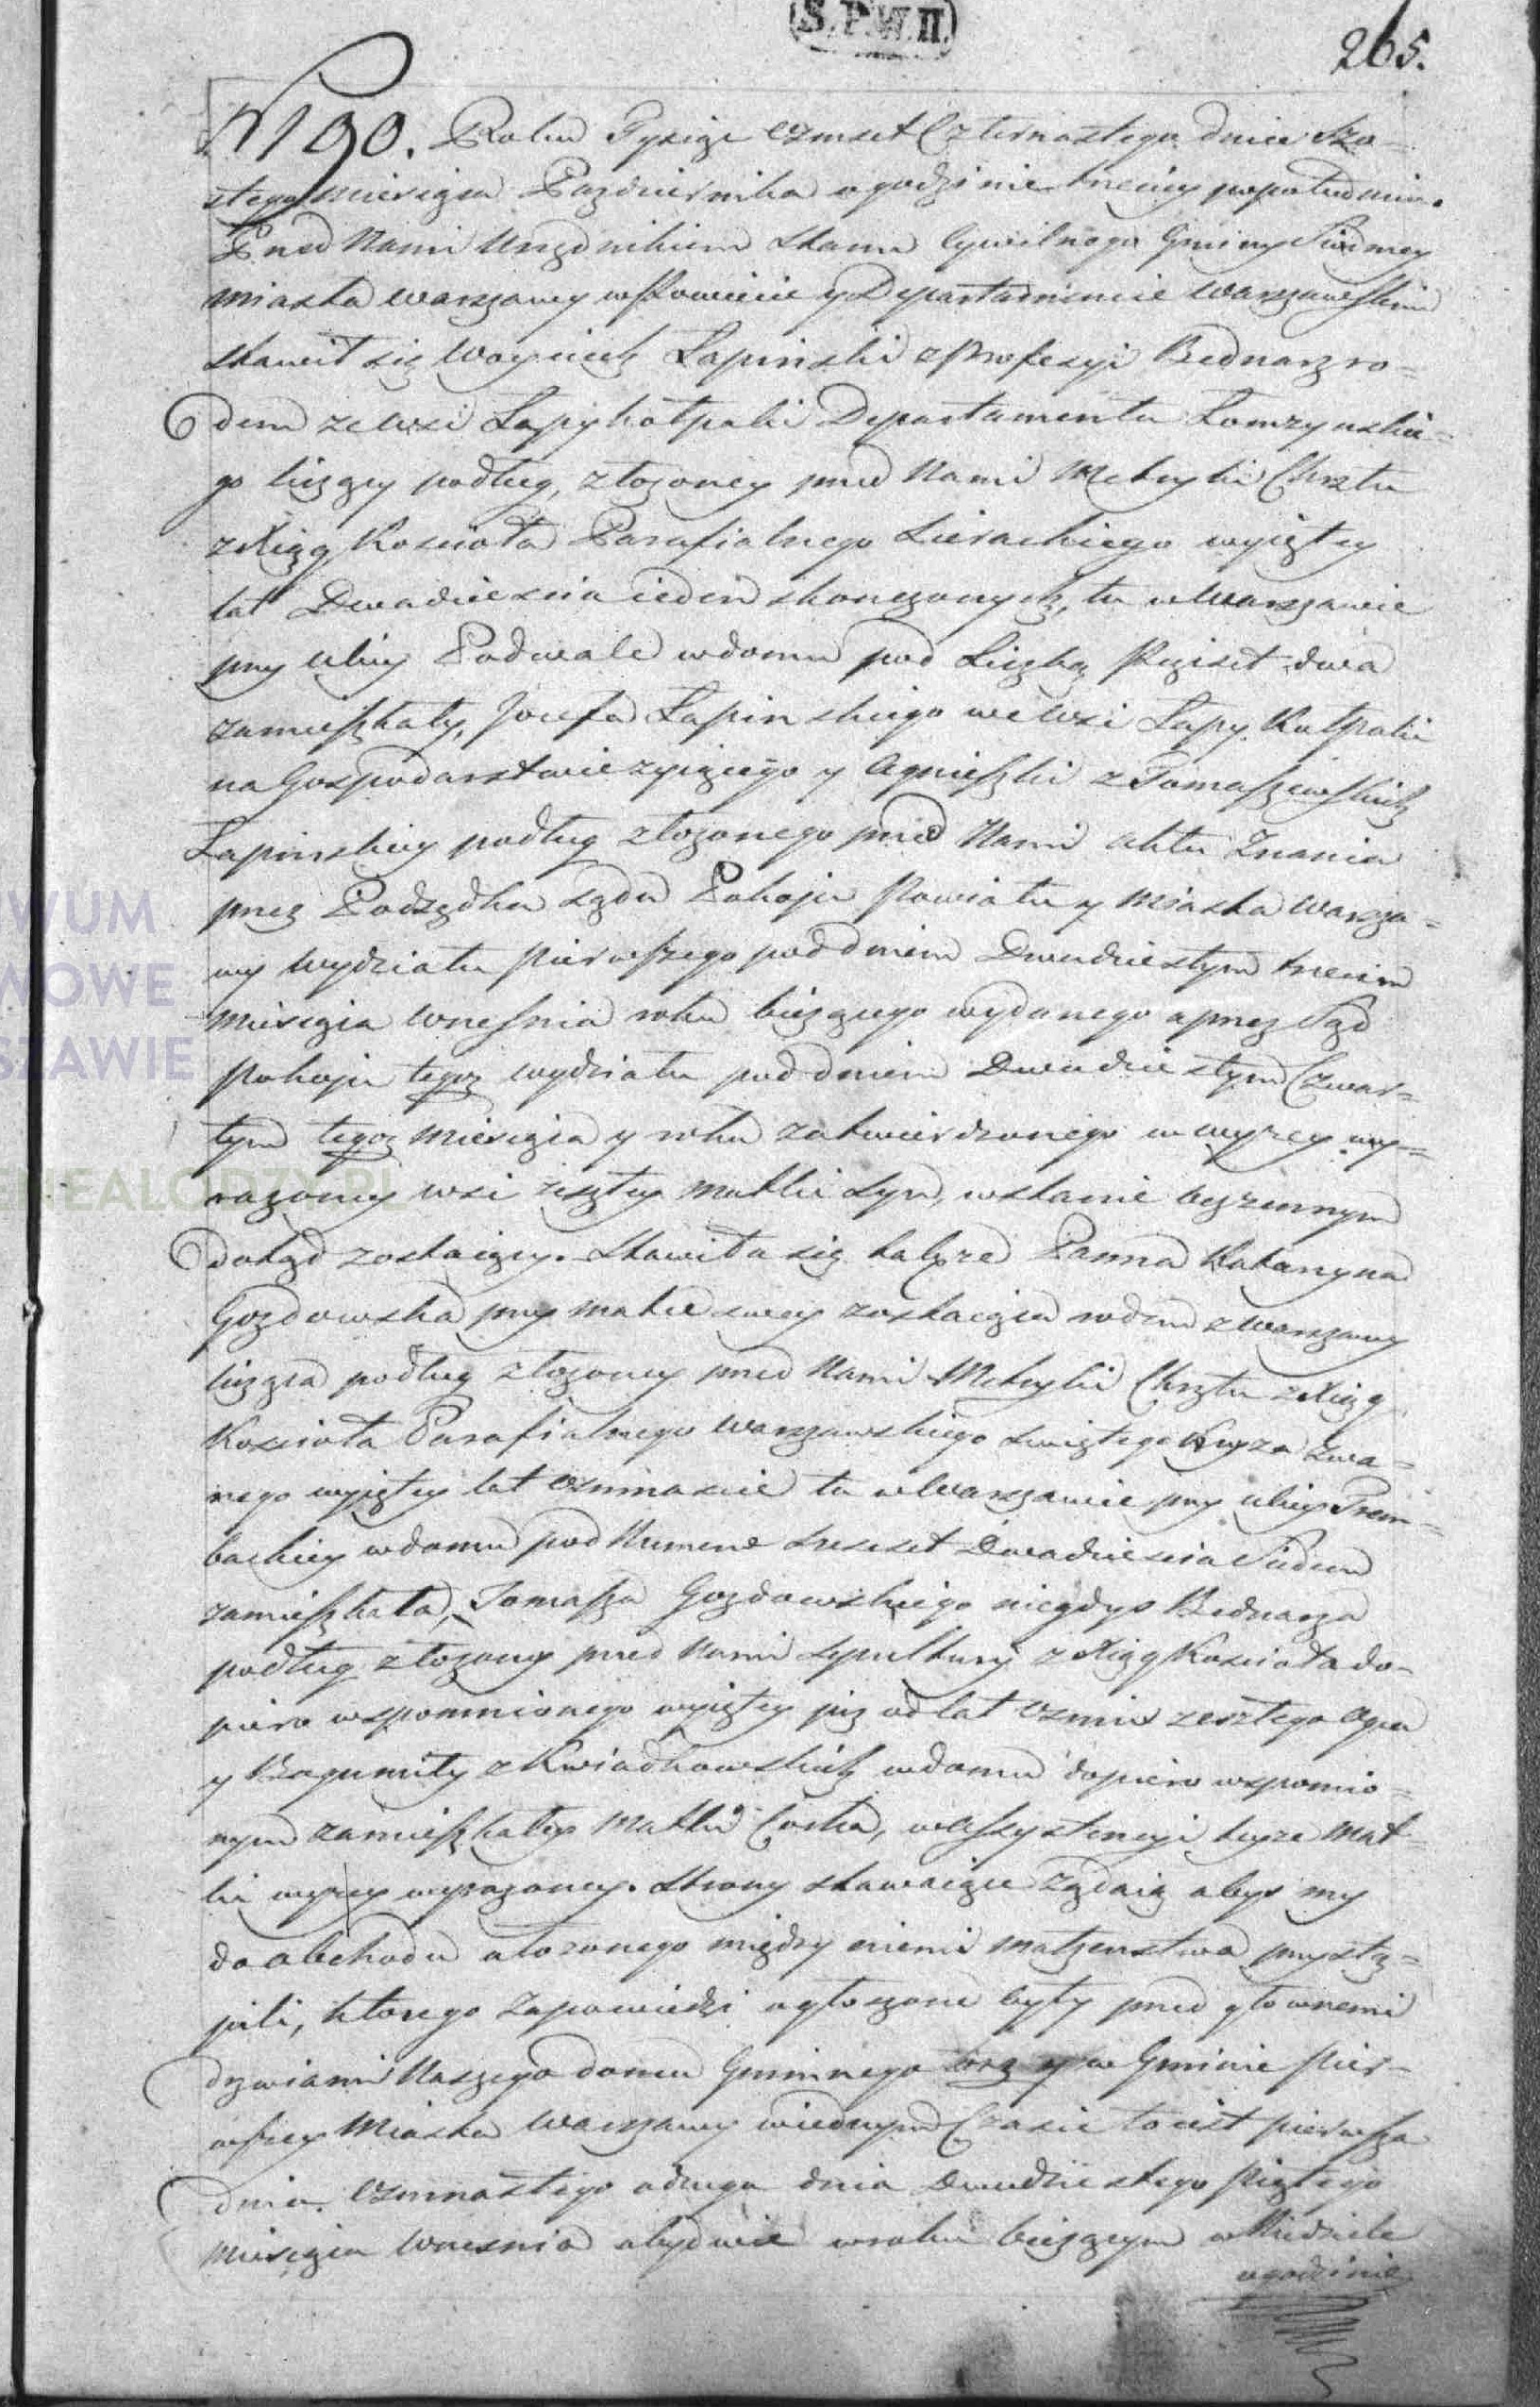 (S.P.W.II.)
265.
N 190. Roku Tysiąc Ośmset Czternastego dnia Szo=
stego Miesiąca Pazdziernika o godzinie trzeciey popołudniu.
Przed Nami Urzędnikiem Stanu Cywilnego Gminy Siodmey
miasta Warszawy w Powiecie y Departamencie Warszawskim
stawił się Woyciech Łapinski z Profesyi Bednarz ro=
dem ze wsi Łapy Departamentu Łomzynskie=
go liczący podług złożoney przed Nami Metryki Chrztu
z Xiąg Kościoła Parafialnego wyiętey
lat Dwadzieścia ieden skonczonych, tu w Warszawie
przy ulicy Podwale w domu pod Liczbą Pięcset dwa
zamieszkały, Jozefa Łapinskiego we wsi Łapy
na Gospodarstwie zyiącego y Agnieszki z Tomaszewskich
Łapinskiey podług złożonego przed Nami aktu Znania
przez Podsędka Sądu Pokoju Powiatu y Miasta Warsza=
wy Wydziału Pierwszego pod dniem Dwudziestym trzecim
Miesiąca Września roku bieżącego wydanego a przez Sąd
Pokoju tegoż wydziału pod dniem Dwudziestym Czwar=
tym tegoż Miesiąca y roku zatwierdzonego w wyzey wy=
razoney wsi zeszłey Matki Syn, w stanie bezzennym
dotąd zostaiący. Stawiła się także Panna Katarzyna
Gozdowska przy matce swey zostaiąca rodem z Warszawy
licząca podług złożoney przed Nami Metryki Chrztu z Xiąg
Kościoła Parafialnego Warszawskiego Swiętego Krzyza zwa=
nego wyiętey lat Osmnascie tu w Warszawie przy ulicy Trem=
backiey w domu pod Numerem Szescset Dwadziescia Siedem
zamieszkała, Tomasza Gozdowskiego niegdys Bednarza
podług złożoney przed Nami Sepultury z Xiąg Kościoła do=
piero wspomnionego wyiętey już od lat Osmiu zeszłego Oyca
y Bogumiły z Kwiatkowskich w domu dopiero wspomnio=
nym zamieszkałey Matki Corka, w Assystencyi teyze Mat=
ki wyzey wyrażoney. Strony stawaiące żądaią abyśmy
do obchodu ułożonego między niemi małżenstwa przystą=
pili, ktorego Zapowiedzi ogłoszone były przed głownemi
drzwiami Naszego domu Gminnego oraz y w Gminie Pier=
wszey Miasta Warszawy w iednym Czasie to iest pierwsza
dnia Osmnastego a druga dnia Dwudziestego Piątego
Miesiąca Wrzesnia obydwie w roku bieżącym w Niedziele
o godzinie